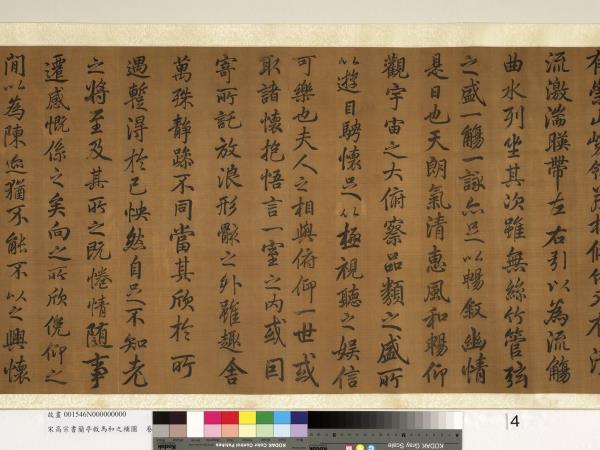 有崇山峻領茂林脩竹又有清
流激湍暎帶左右引以為流觴
曲水列坐其次雖無絲竹管弦
之盛一觴一詠亦足以暢敘幽情
是日也天朗氣清惠風和暢仰
觀宇宙之大俯察品類之盛所
以遊目騁懷足以極視聽之娛信
可樂也夫人之相與俯仰一世或
取諸懷抱悟言一室之內或因
寄所託放浪形骸之外雖趣舍
萬殊靜躁不同當其欣於所
遇蹔得於己怏然自足不知老
之將至及其所之既惓情隨事
遷感慨係之矣向之所欣俛仰之
閒以為陳迹猶不能不以之興懷
故畫 001546N000000000
宋高宗書蘭亭敘馬和之補圖 卷
KODAK Color Control Patches
KODAK Gray Scale
4